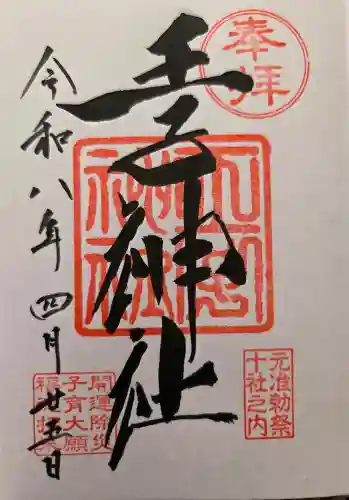 奉拝
王子神社
元准勅祭
十社之内
開運除災
子育大願
令和八年四月廿五日